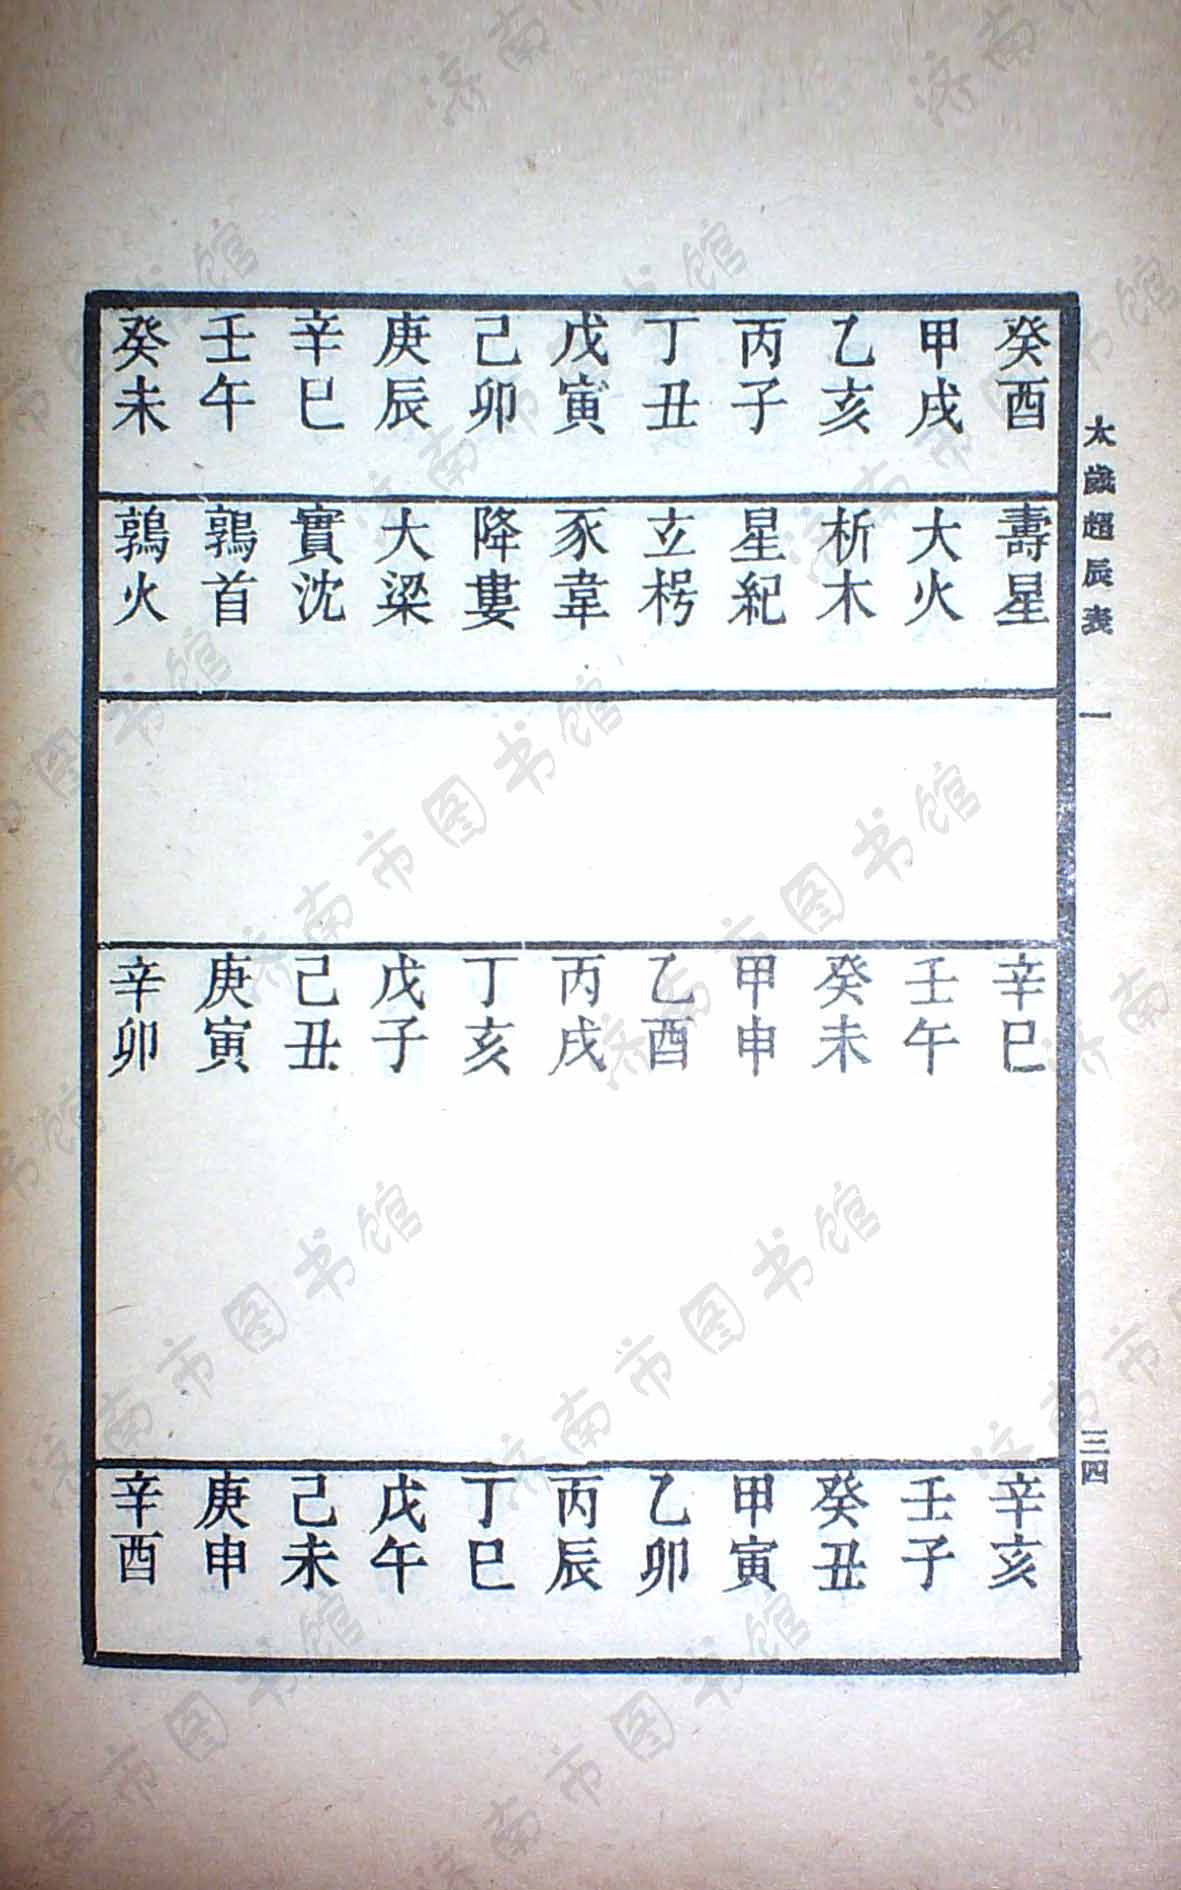 太歲超辰表 一 三四
癸酉 壽星 辛巳 辛亥
甲戌 大火 壬午 壬子
乙亥 析木 癸未 癸丑
丙子 星紀 甲申 甲寅
丁丑 立枵 乙酉 乙卯
戊寅 豕韋 丙戌 丙辰
己卯 降婁 丁亥 丁巳
庚辰 大梁 戊子 戊午
辛巳 實沈 己丑 己未
壬午 鶉首 庚寅 庚申
癸未 鶉火 辛卯 辛酉
济南市图书馆